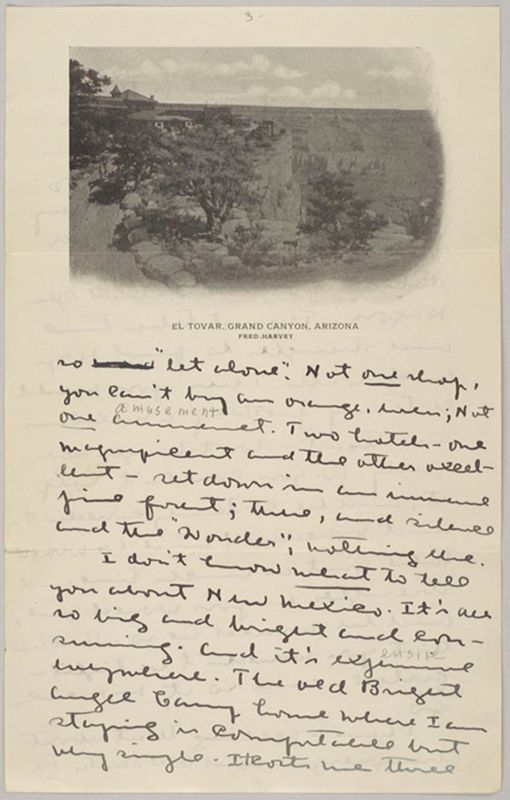 3.
EL TOVAR, GRAND CANYON, ARIZONA
FRED HARVEY
so "let alone". Not one shop,
you can't buy an orange, even; Not
amusement
one amusement. Two hotels - one
magnificent and the other excel-
lent - set down in an immense
pine forest; these, and silence
and the "Wonder"; nothing else.
I don't know what to tell
you about New Mexico. It's all
so big and bright and con-
suming. And it's expensive
ensive
everywhere. The old Bright
Angel Camp home where I am
staying is comfortable but
very simple. It costs me three